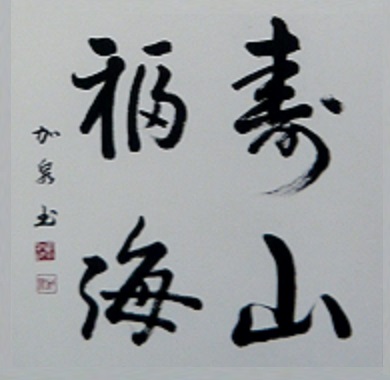 寿山
福海
加泉书